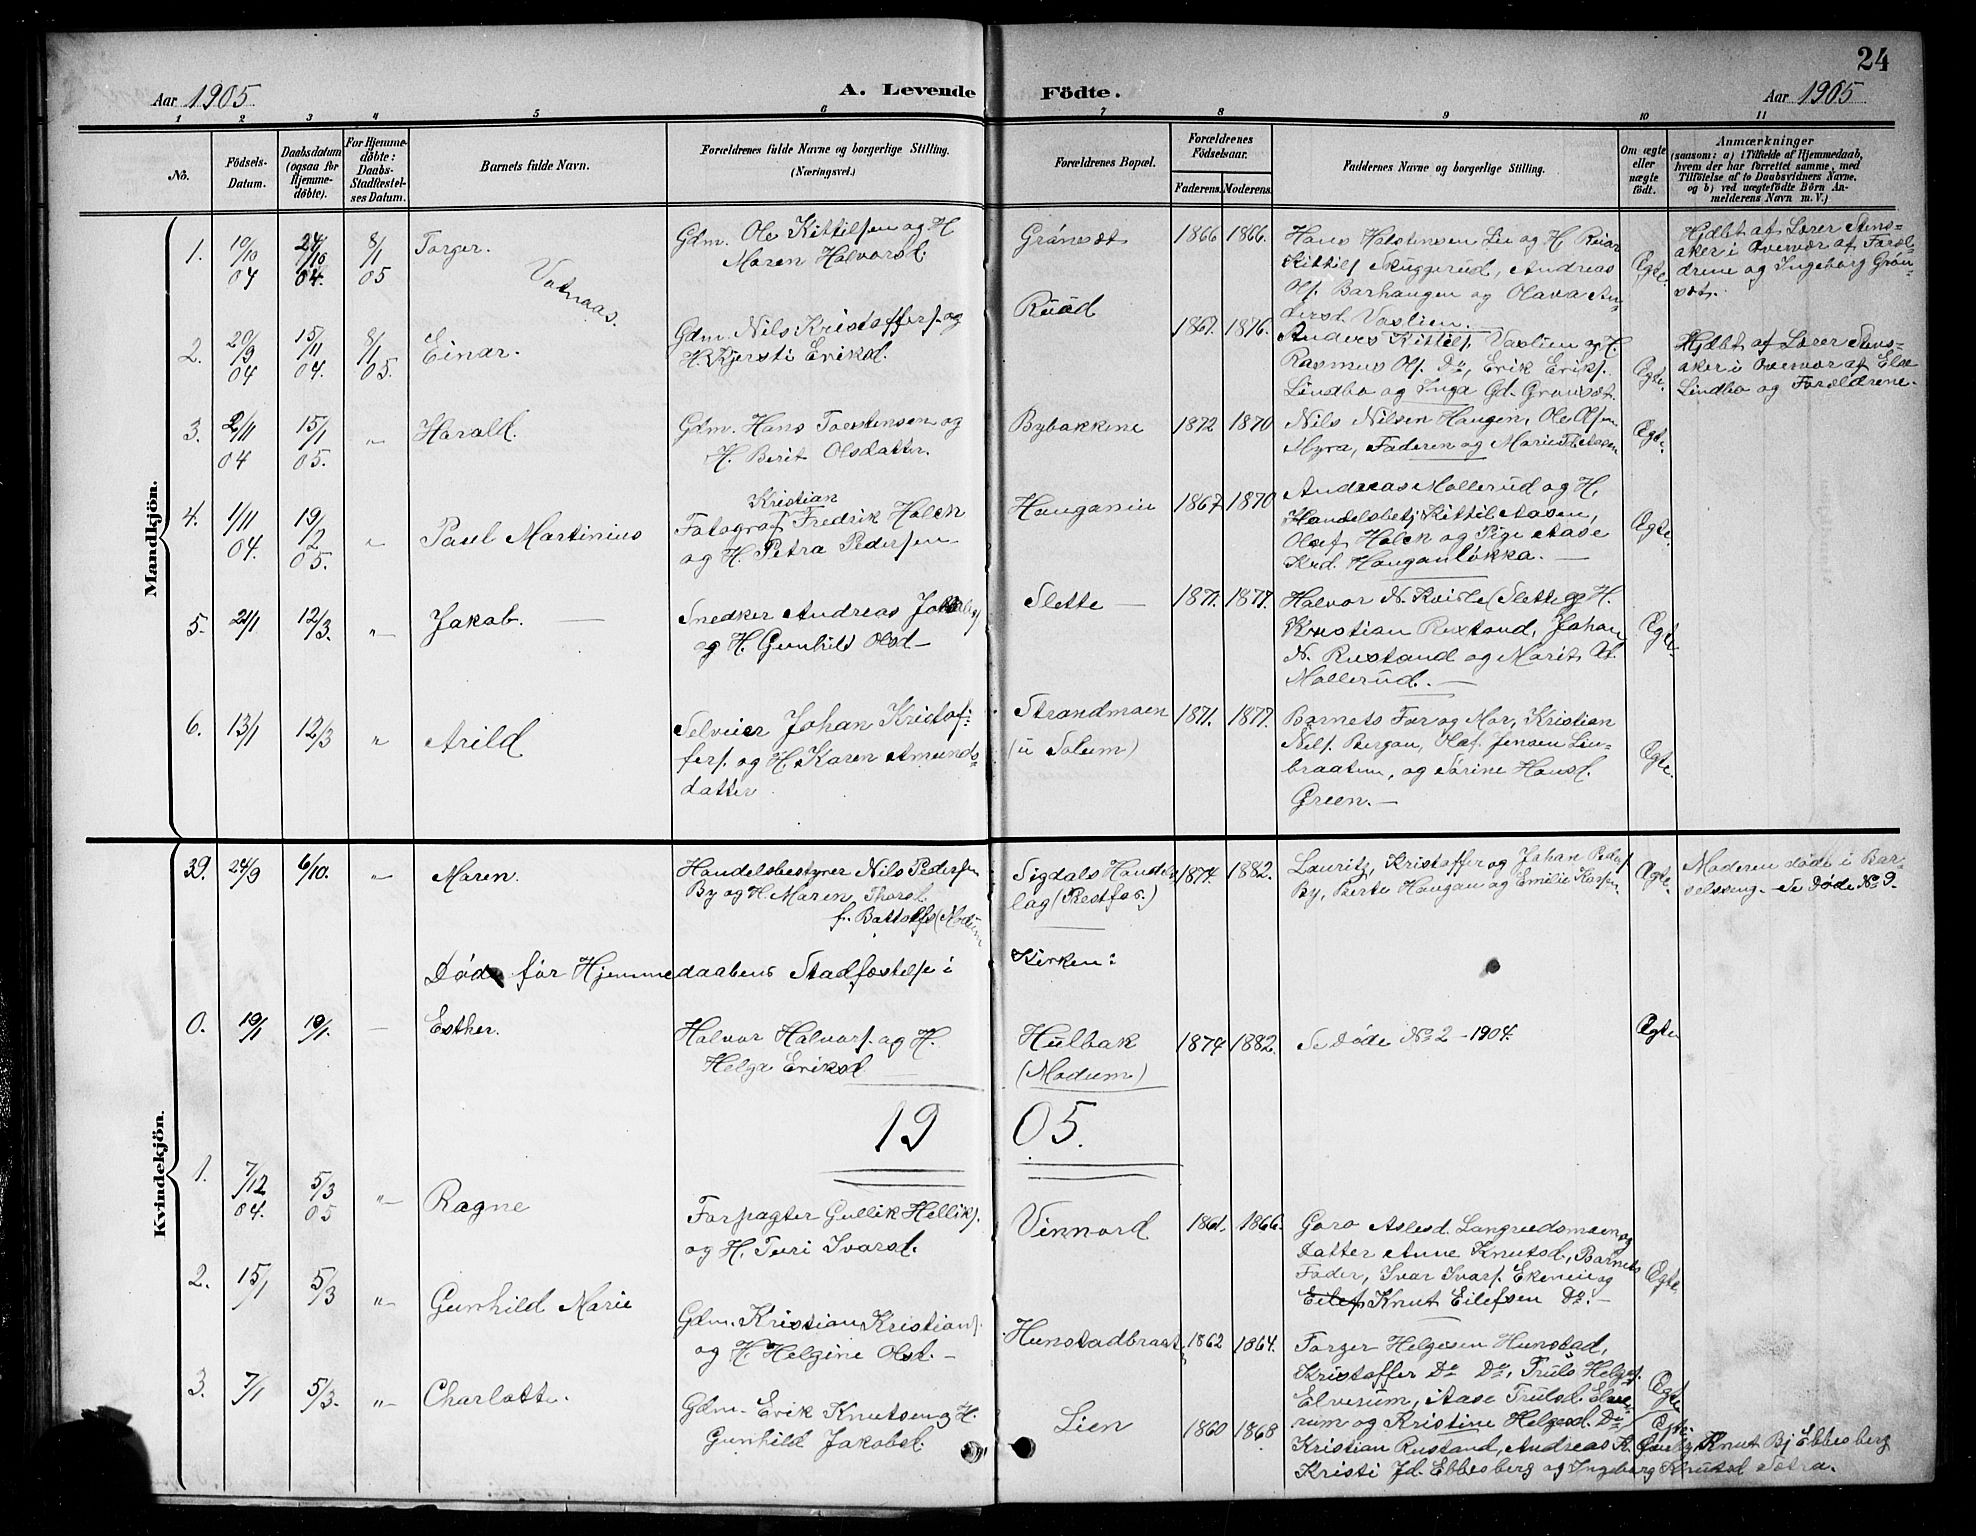 24
Aar 1905. A. Levende Födte. Aar 1905
1 2 3 4 5 6 7 8 9 10 11
No.
Födsels-
Datum.
Daabsdatum
(ogsaa för
Hjemme-
döbte).
For Hjemme-
döbte:
Daabs-
Stadfæstel-
ses Datum.
Barnets fulde Navn.
Forældrenes fulde Navne og borgerlige Stilling.
(Næringsvei.)
Forældrenes Bopæl.
Forældrenes
Födselsaar.
Faderens. Moderens.
Faddernes Navne og borgerlige Stilling.
Om ægte
eller
uægte
födt.
Anmærkninger
(saasom: a) i Tilfælde af Hjemmedaab,
hvem der har forrettet samme, med
Tilföielse af to Daabsvidners Navne.
og b) ved uægtefödte Börn An-
melderens Navn m. V.)
Mandkjön.
1. 10/10 04 24/10 04. 8/1 05 Torger.
Vatnaas.
Gdm. Ole Kittilsen og H.
Maren Halvorsd.
Grönsæt 1866 1866.
Hans Halstensen Lie og H. Roar
Kittils. Skuggerud, Andreas
Ols. Barhaugen og Olava An-
dersd. Vaslien.
Ægte.
Hjdbt af Lærer Stens-
aker i Overvær af Foræl-
drene og Ingeborg Grön-
sæt.
2. 20/9 04 15/11 04. 8/1 05. Einar.
Gdm. Nils Kristoffers. og
H. Kjersti Eriksd.
Ruud 1867. 1876.
Anders Kittils. Vaslien og H.
Rasmus Ols. Do, Erik Eriks.
Lindbo og Inga Gd. Grönsæt.
Ægte.
Hjdbt af Lærer Stens-
aker i Overvær af Else
Lindbo og Forældrene.
3. 2/11 04 15/1 05. " Harald.
Gdm. Hans Torstensen og
H. Berit Olsdatter.
Bybakkene 1872 1870
Nils Nilsen Haugen, Ole Olsen
Myra, Faderen og Marie
Ægte.
4. 1/11 04. 19/2 05. " Paul Martinius
Kristian
Fotograf Fredrik Holen
og H. Petra Pedersen
Haugamin 1867 1870
Andreas Mollerud og H.
Handelsbetj. Kittil Aasen,
Olaf Holen og Pige Aase
Krd. Hauganløkka.
Ægte.
5. 21/1 12/3. " Jakob.
Snedker Andreas
og H. Gunhild Olsd.
Slette 1871. 1877.
Halvor N. Kvisle (Slette og H.
Kristian Rustand, Johan
N. Rustand og Marit
Mollerud.
Ægte.
6. 13/1 12/3 " Arild
Selveier Johan Kristof-
fers. og H. Karen Amunds-
datter
Strandmoen
(i Solum) 1871. 1877.
Barnets Far og Mor, Kristian
Nils. Bergan, Olaf Jensen Lin-
braaten, og Sörine Hansd.
Green.
Ægte.
Kvindekjön.
39. 24/9 6/10. " Maren.
Handelsbestyrer Nils Pedersen
By og H. Maren Thorsd.
f. Battolfs (Modum
Sigdals Handels-
lag (Prestfos.) 1874. 1882.
Lauritz, Kristoffer og Johan Peders.
By, Berte Haugan og Emilie
Ægte.
Moderen døde i Bar-
selsseng. Se Døde No 9.
Døde før Hjemmedaabens Stadfæstelse i Kirken:
0. 19/1 19/1. Esther.
Halvor Halvors. og H.
Helga Eriksd.
Hulbak
(Modum) 1874 1882.
Se Døde No 2 - 1904.
Ægte
19 05.
1. 7/12 04. 5/3 05 " Ragne
Forpagter Gullik Helliks.
og H. Turi Ivarsd.
Vinnord 1861. 1866.
Goro Aslesd. Langrudsmoen og
Datter Anne Knutsd, Barnets
Fader, Ivar Ivars. Ekeneie og
Eilef Knut Eilefsen Do.
Ægte
2. 15/1 5/3 " Gunhild Marie
Gdm. Kristian Kristians.
og H. Helgine Olsd.
Hunstadbraat 1862 1864.
Torger Helgesen Hunstad,
Kristoffer Do Do, Truls Helges.
Elverum, Aase Trulsd. Elve-
rum og Kristine Helgesd. Do
Ægte
3. 7/1 5/3. " Charlotte.
Gdm. Erik Knutsen og H.
Gunhild Jakobsd.
Lien 1860 1868
Ægte.
Kristian Rustand, Andreas K. Knut Bj. Ebbesberg
Kristi Jd. Ebbesberg og Ingeborg Knutsd Sætra.